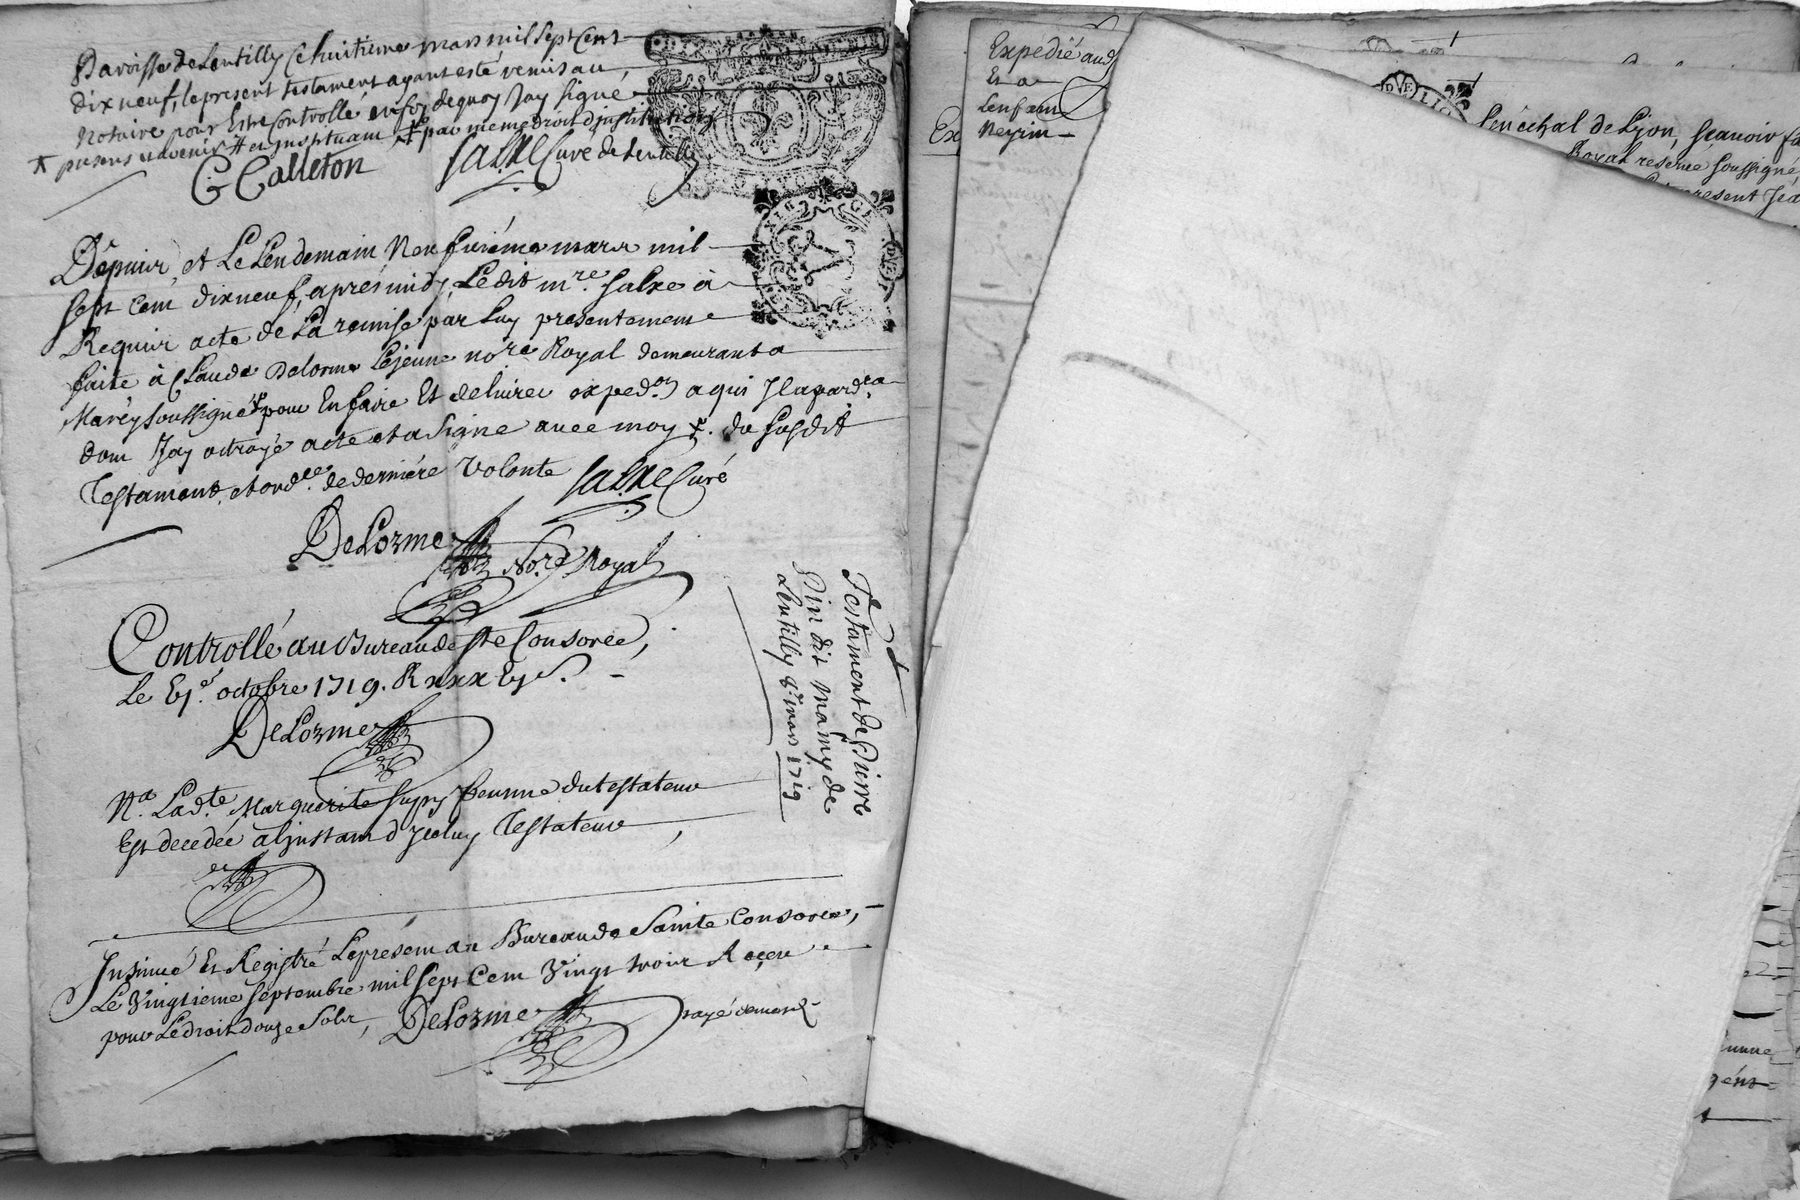 Paroisse de Lentilly ce huitieme mars mil sept cent
dix neuf, le present testament ayant esté remis au
Notaire pour Estre Controllé en foy de quoy Jay signé
presens navenir # et instituant par meme droit d'institution
G Calleton Salxe Curé de Lentilly
Depuis et Le Lendemain Neufvième mars mil
sept cent dixneuf, après midy, Ledit mre. Salxe à
Requir acte de La remise par Luy presentement
faite à Claude Delorme Lejeune nore Royal demeurant a
Marcy soussigné pour En faire Et delivrer exped.on a qui Jl apard.ra
dont Jay octroyé acte et a signé avec moy du susdit
Testament et ord.ce de dernière volonte Salxe Curé
DeLorme No.re Royal
Controllé au Bureau de Ste Consorce,
Le octobre 1719. R
DeLorme
Na. Lad.te Marguerite femme du testateur
Est decedée a l'instant d'Jceluy Testateur
Insinué Et Registré Le present au Bureau de Sainte Consorce,
Le vingtieme septembre mil sept cent vingt trois Reçeu
pour Le droit douze Sols, DeLorme
Testament de Pierre
Pin dit Mamy de
Lentilly 8e. mars 1719
Expédié aud
Et a
Lenfant
Neyrin
Ex
Senéchal de Lyon, scavoir fa
Royal reservé soussigné,
present Jea